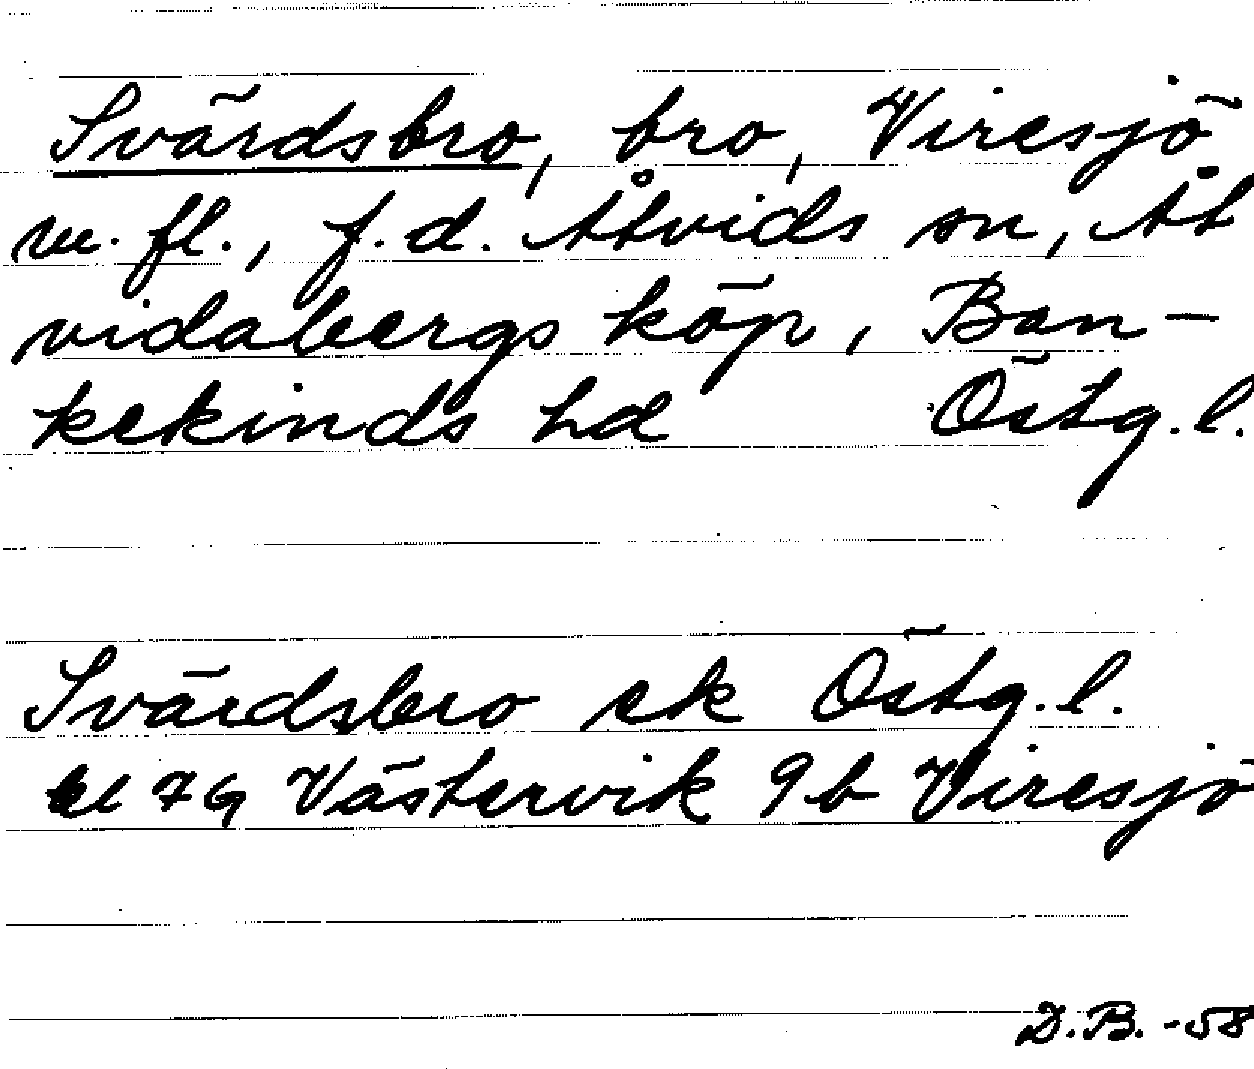 Svärdsbro, bro, Viresjö
m. fl., f. d. Åtvids sn, Åt
vidabergs köp, Ban-
kekinds hd Östg. l.
Svärdsbro ek Östg. l.
bl 7G Västervik 9b Viresjö
D.B. -58